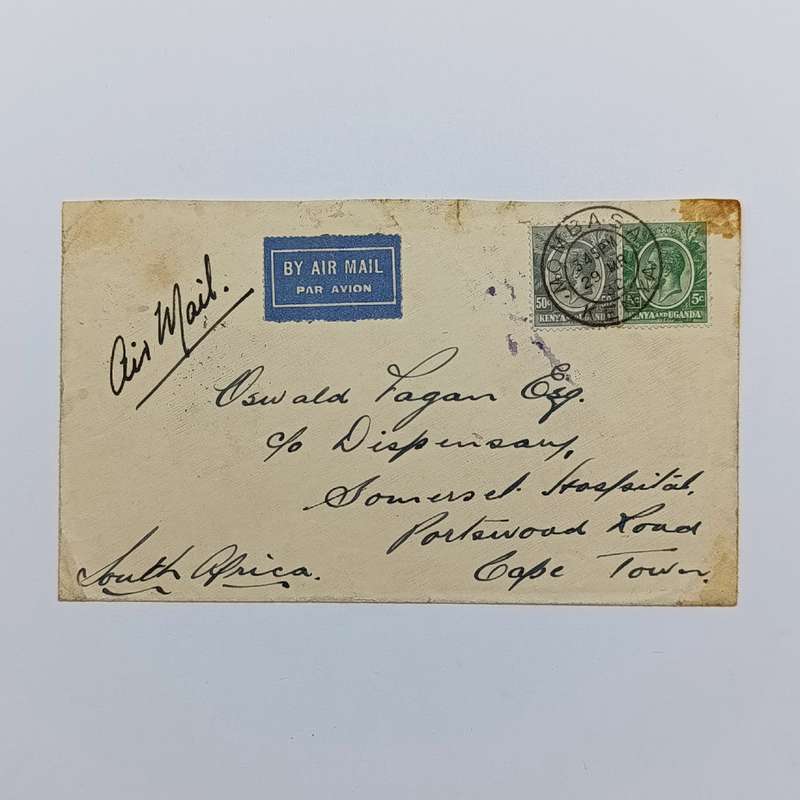 Air Mail.
BY AIR MAIL
PAR AVION
MOMBASA
29 MR
50c
KENYA AND UGANDA
5c
KENYA AND UGANDA
Oswald Fagan Esq.
c/o Dispensary,
Somerset Hospital,
Portswood Road
Cape Town.
South Africa.